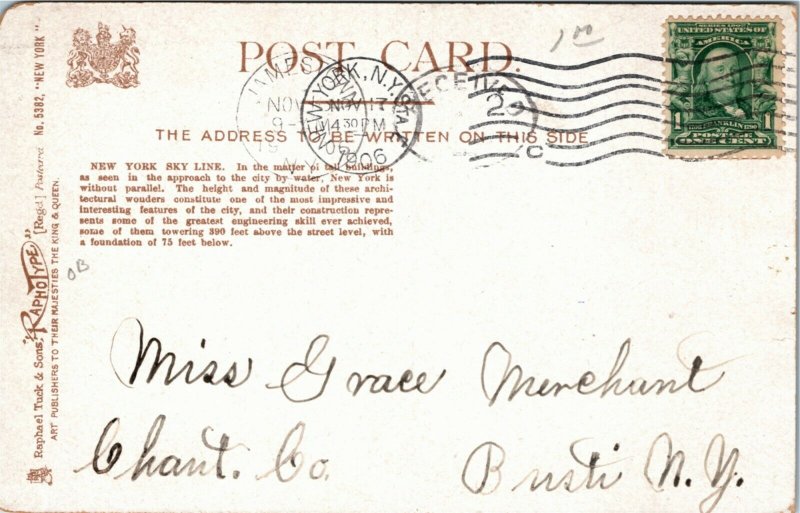 POST CARD.
THE ADDRESS TO BE WRITTEN ON THIS SIDE
NEW YORK SKY LINE. In the matter of tall buildings,
as seen in the approach to the city by water, New York is
without parallel. The height and magnitude of these archi-
tectural wonders constitute one of the most impressive and
interesting features of the city, and their construction repre-
sents some of the greatest engineering skill ever achieved,
some of them towering 390 feet above the street level, with
a foundation of 75 feet below.
Raphael Tuck & Sons' "RAPHOTYPE" [Regd.] Postcard No. 5382. "NEW YORK"
ART PUBLISHERS TO THEIR MAJESTIES THE KING & QUEEN.
NEW YORK, N.Y. STA.
NOV 13
4 30 PM
1906
NOV
N.Y.
RECEIVED
2
SERIES 1902
UNITED STATES OF
AMERICA
FRANKLIN
1 POSTAGE 1
ONE CENT
OB
Miss Grace Merchant
Chaut. Co. Busti N.Y.